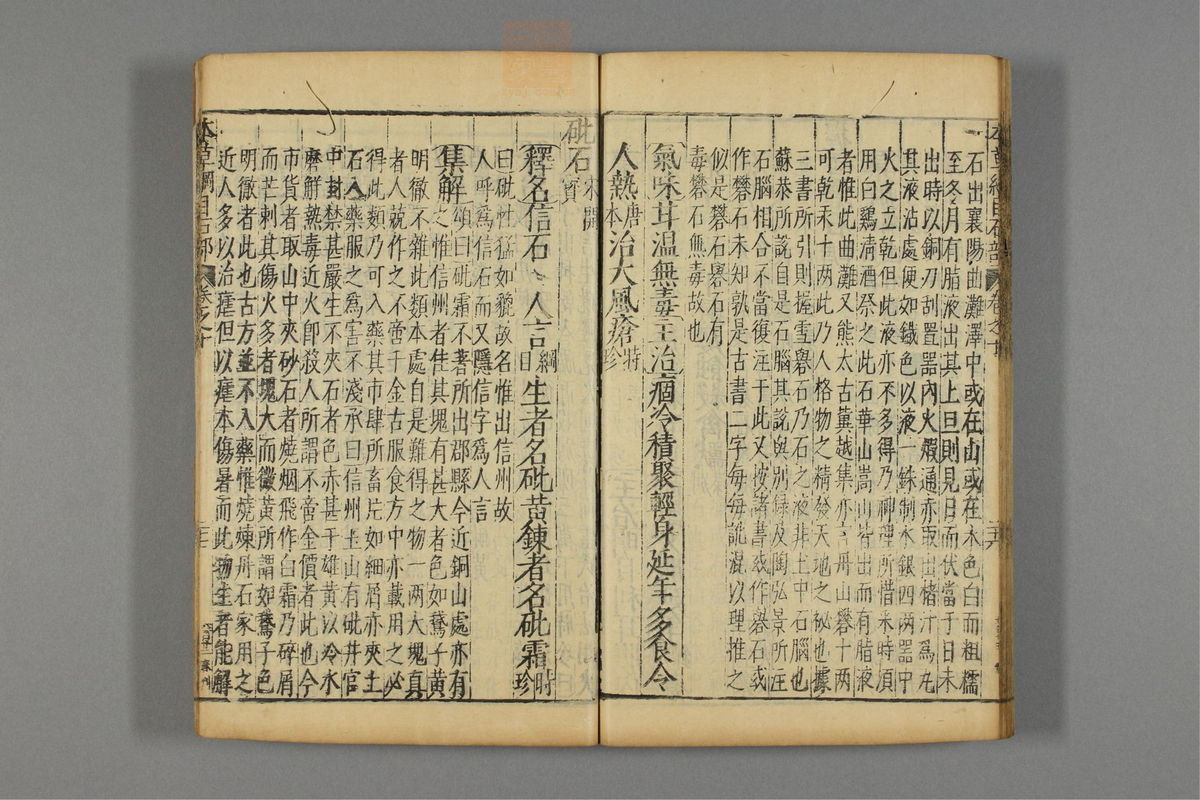 石出襄陽曲灘澤中或在山或在水色白而粗糯
至冬月有脂液出其上旦則見日而伏當于日未
出時以銅刀刮置器內火煅通赤取出楮汁為丸
其液沾處便如鐵色以液一銖制水銀四兩器中
火之立乾但此液亦不多得乃神理所惜采時須
用白鷄清酒祭之此石華山嵩山皆出而有脂液
者惟此曲灘又熊太古冀越集亦言丹山礜十兩
可乾汞十兩此乃人格物之精發天地之祕也據
三書所引則握雪礜石乃石之液非土中石腦也
蘇恭所說自是石腦其說與別錄及陶弘景所注
石腦相合不當復注于此又按諸書或作礬石或
作礜石未知孰是古書二字每每訛混以理推之
似是礬石礜石有
毒礬石無毒故也
氣味甘溫無毒主治痼冷積聚輕身延年多食令
人熱唐本治大風瘡時珍
砒石宋開寶
釋名信石人言綱目生者名砒黃鍊者名砒霜時珍
曰砒性猛如貔故名惟出信州故
人呼為信石而又隱信字為人言
集解頌曰砒霜不著所出郡縣今近銅山處亦有
之惟信州者佳其塊有甚大者色如鵞子黃
明徹不雜此類本處自是難得之物一兩大塊真
者人競作之不啻千金古服食方中亦載用之必
得此類乃可入藥其市肆所畜片如細屑亦夾土
石入藥服之為害不淺承曰信州玉山有砒井官
中封禁甚嚴生不夾石者色赤甚于雄黃以冷水
磨解熱毒近火即殺人所謂不啻金價者此也今
市貨者取山中夾砂石者燒烟飛作白霜乃碎屑
而芒刺其傷火多者塊大而微黃所謂如鵞子色
明徹者此也古方並不入藥惟燒煉丹石家用之
近人多以治瘧但以瘧本傷暑而此物生者能解
本草綱目石部 卷之十